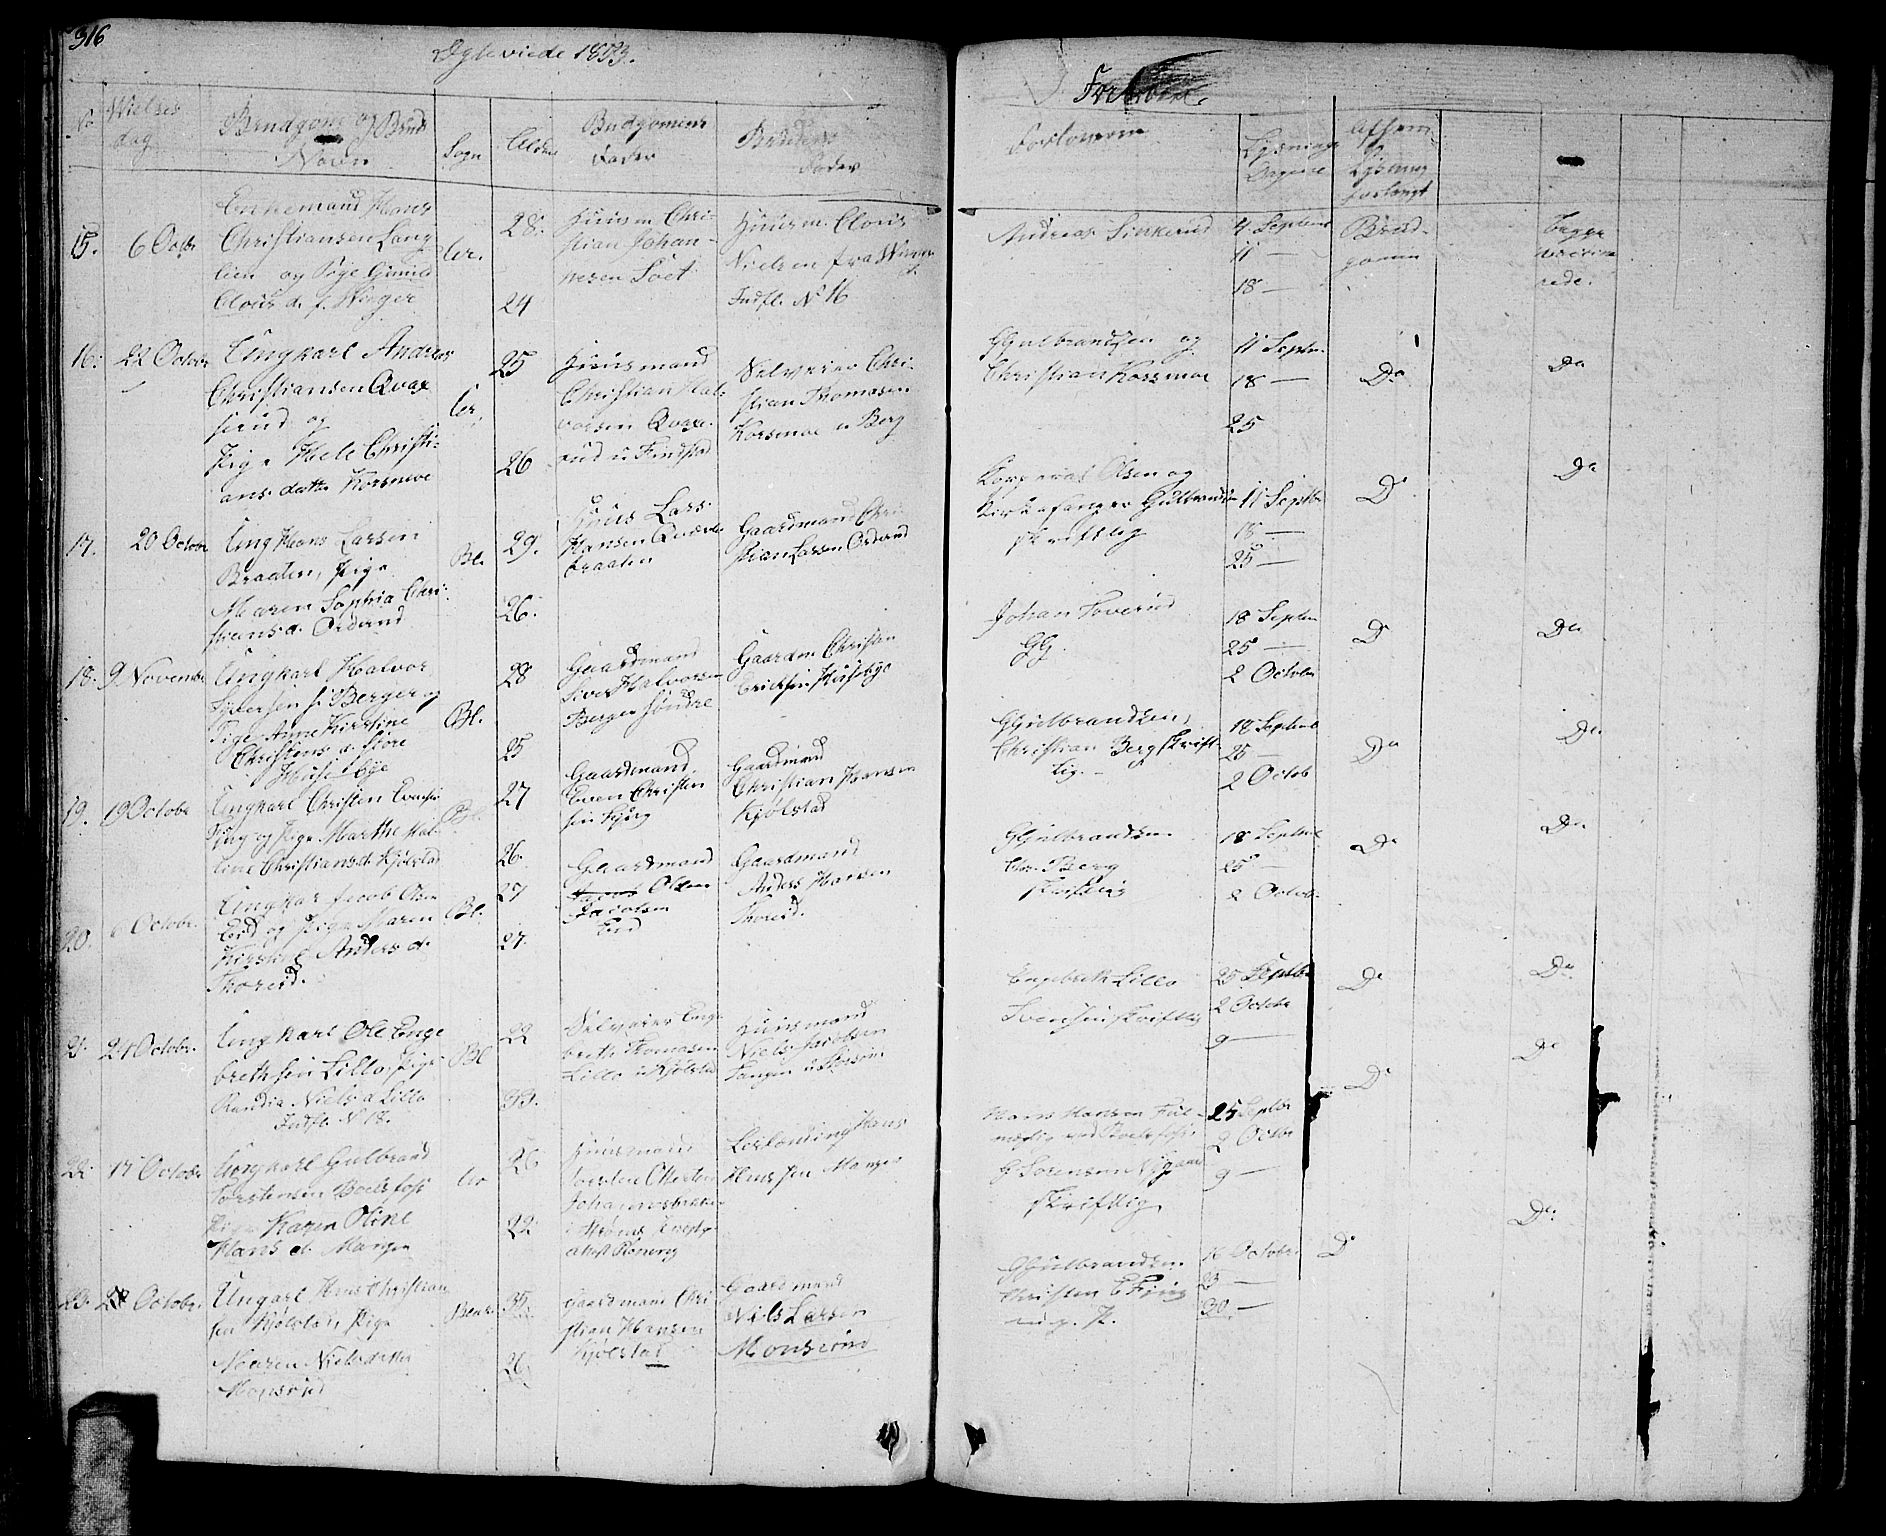 316
Egteviede 1853.
No
Vielses
dag
Brudgoms og Brud
Navn
Sogn
Alder
Brudgomens
Fader
Brudens
Fader
Forlovere
Lysnings
Dagene
Lysning
forlangt
15.
6 Octbr
Enkemand Hans
Christiansen Lang
lien og Pige Gunild
Clous d. f. Winger
Cr.
28.
24
Huusm Chri-
stian Johan-
nesen Soet
Huusm. Clous
Nielsen fra Winger
Indfl. No 16
Andreas Sinkerud
4 Septemb
11 —
18 —
Brud-
gomen
Begge
vaccine
rede.
16.
22 Octobr
Ungkarl Andreas
Christiansen Qvax
serud og
Pige Helle Christi-
ans datter Korsmoe
Cr.
25
26
Huusmand
Christian Hal-
vorsen Qvaxe-
rud u Finstad
Selveier Chri-
stian Thomasen
Korsmoe u Berg
GGulbrandsen og
Christian Korsmoe
11 Septbr.
18 —
25
Do
Do
17.
20 Octobr
Ung Hans Larsen
Braaten, Pige
Maren Sophia Chri-
stians d. Orderud
Bl.
29.
26.
Huus Lars
Hansen
braaten
Gaardmand Chri-
stian Larsen Orderud
Korporal Olsen og
Kirkesanger Gulbrandsen
skriftlig
11 Septbr
18 —
25 —
Do
Do
18.
9 November
Ungkarl Halvor
Syversen s. Berger og
Pige Anne Kirstine
Christens d. Store
Huseby
Bl.
28
25
Gaardmand
Siver Halvorsen
Berger Søndre
Gaardm Christen
Ericksen Huseby
Johan Toverud
GG.
18 Septem
25 —
2 Octobr
Do
Do
19.
19 October
Ungkarl Christen Evensen
Fjug og Pige Marthe Mal-
line Christians d. Kjølstad
Bl.
27
26.
Gaardmand
Even Christen
sen Fjug
Gaardmand
Christian Hansen
Kjølstad
GGulbrandsen,
Christian Berg skrift-
lig. -
18 Septemb
25 —
2 Octob
Do
Do
20.
Octobr.
Ungkar Jacob Olsen
Eid og Pige Maren
Kirstine Anders d.
Thorerud.
Bl.
27
27.
Gaardmand
Olsen
Jacobsen
Eid
Gaardmand
Anders Hansen
Thorerud.
GGulbrandsen
Chr. Berg
skriftlig
18 Septemb
25 —
2 Octob.
Do
Do
21.
21 Octobr.
Ungkarl Ole Enge
brethsen Lillo, Pige
Randia Niels d Lillo
Indfl. N 18.
Bl
22
33.
Selveier Enge
breth Thomasen
Lillo u Kjølstad
Huusmand
Niels Jacobsen
Tangen u
Engebreth Lillo
skriftlig
25 Septbr
2 Octobr
9 —
Do
Do
22.
17 October
Ungkarl Gulbrand
Torstensen Boelsfoss
Pige Karen Oline
Hans d. Mangen
Cr
26
22
Huusmand
Torsten Ottersen
Johannesbakken
Hans
Mangen
Hans Hansen Ful-
mægtig ved Boelsfoss.
G Sørensen Nygaard
skriftlig
25 Septbr
2 Octbr
9 —
Do
Do
23.
28 October.
Ungkarl Hans Christian
sen Kjølstad, Pige
Maren Nielsdatter
Monsrud
35.
26.
Gaardmand Chri
stian Hansen
Kjølstad
Gaardmand
Niels Larsen
Monsrud
GGulbrandsen
Christen E Fjug
m. p. P.
16 Octobr.
23 —
30. —
Do
Do